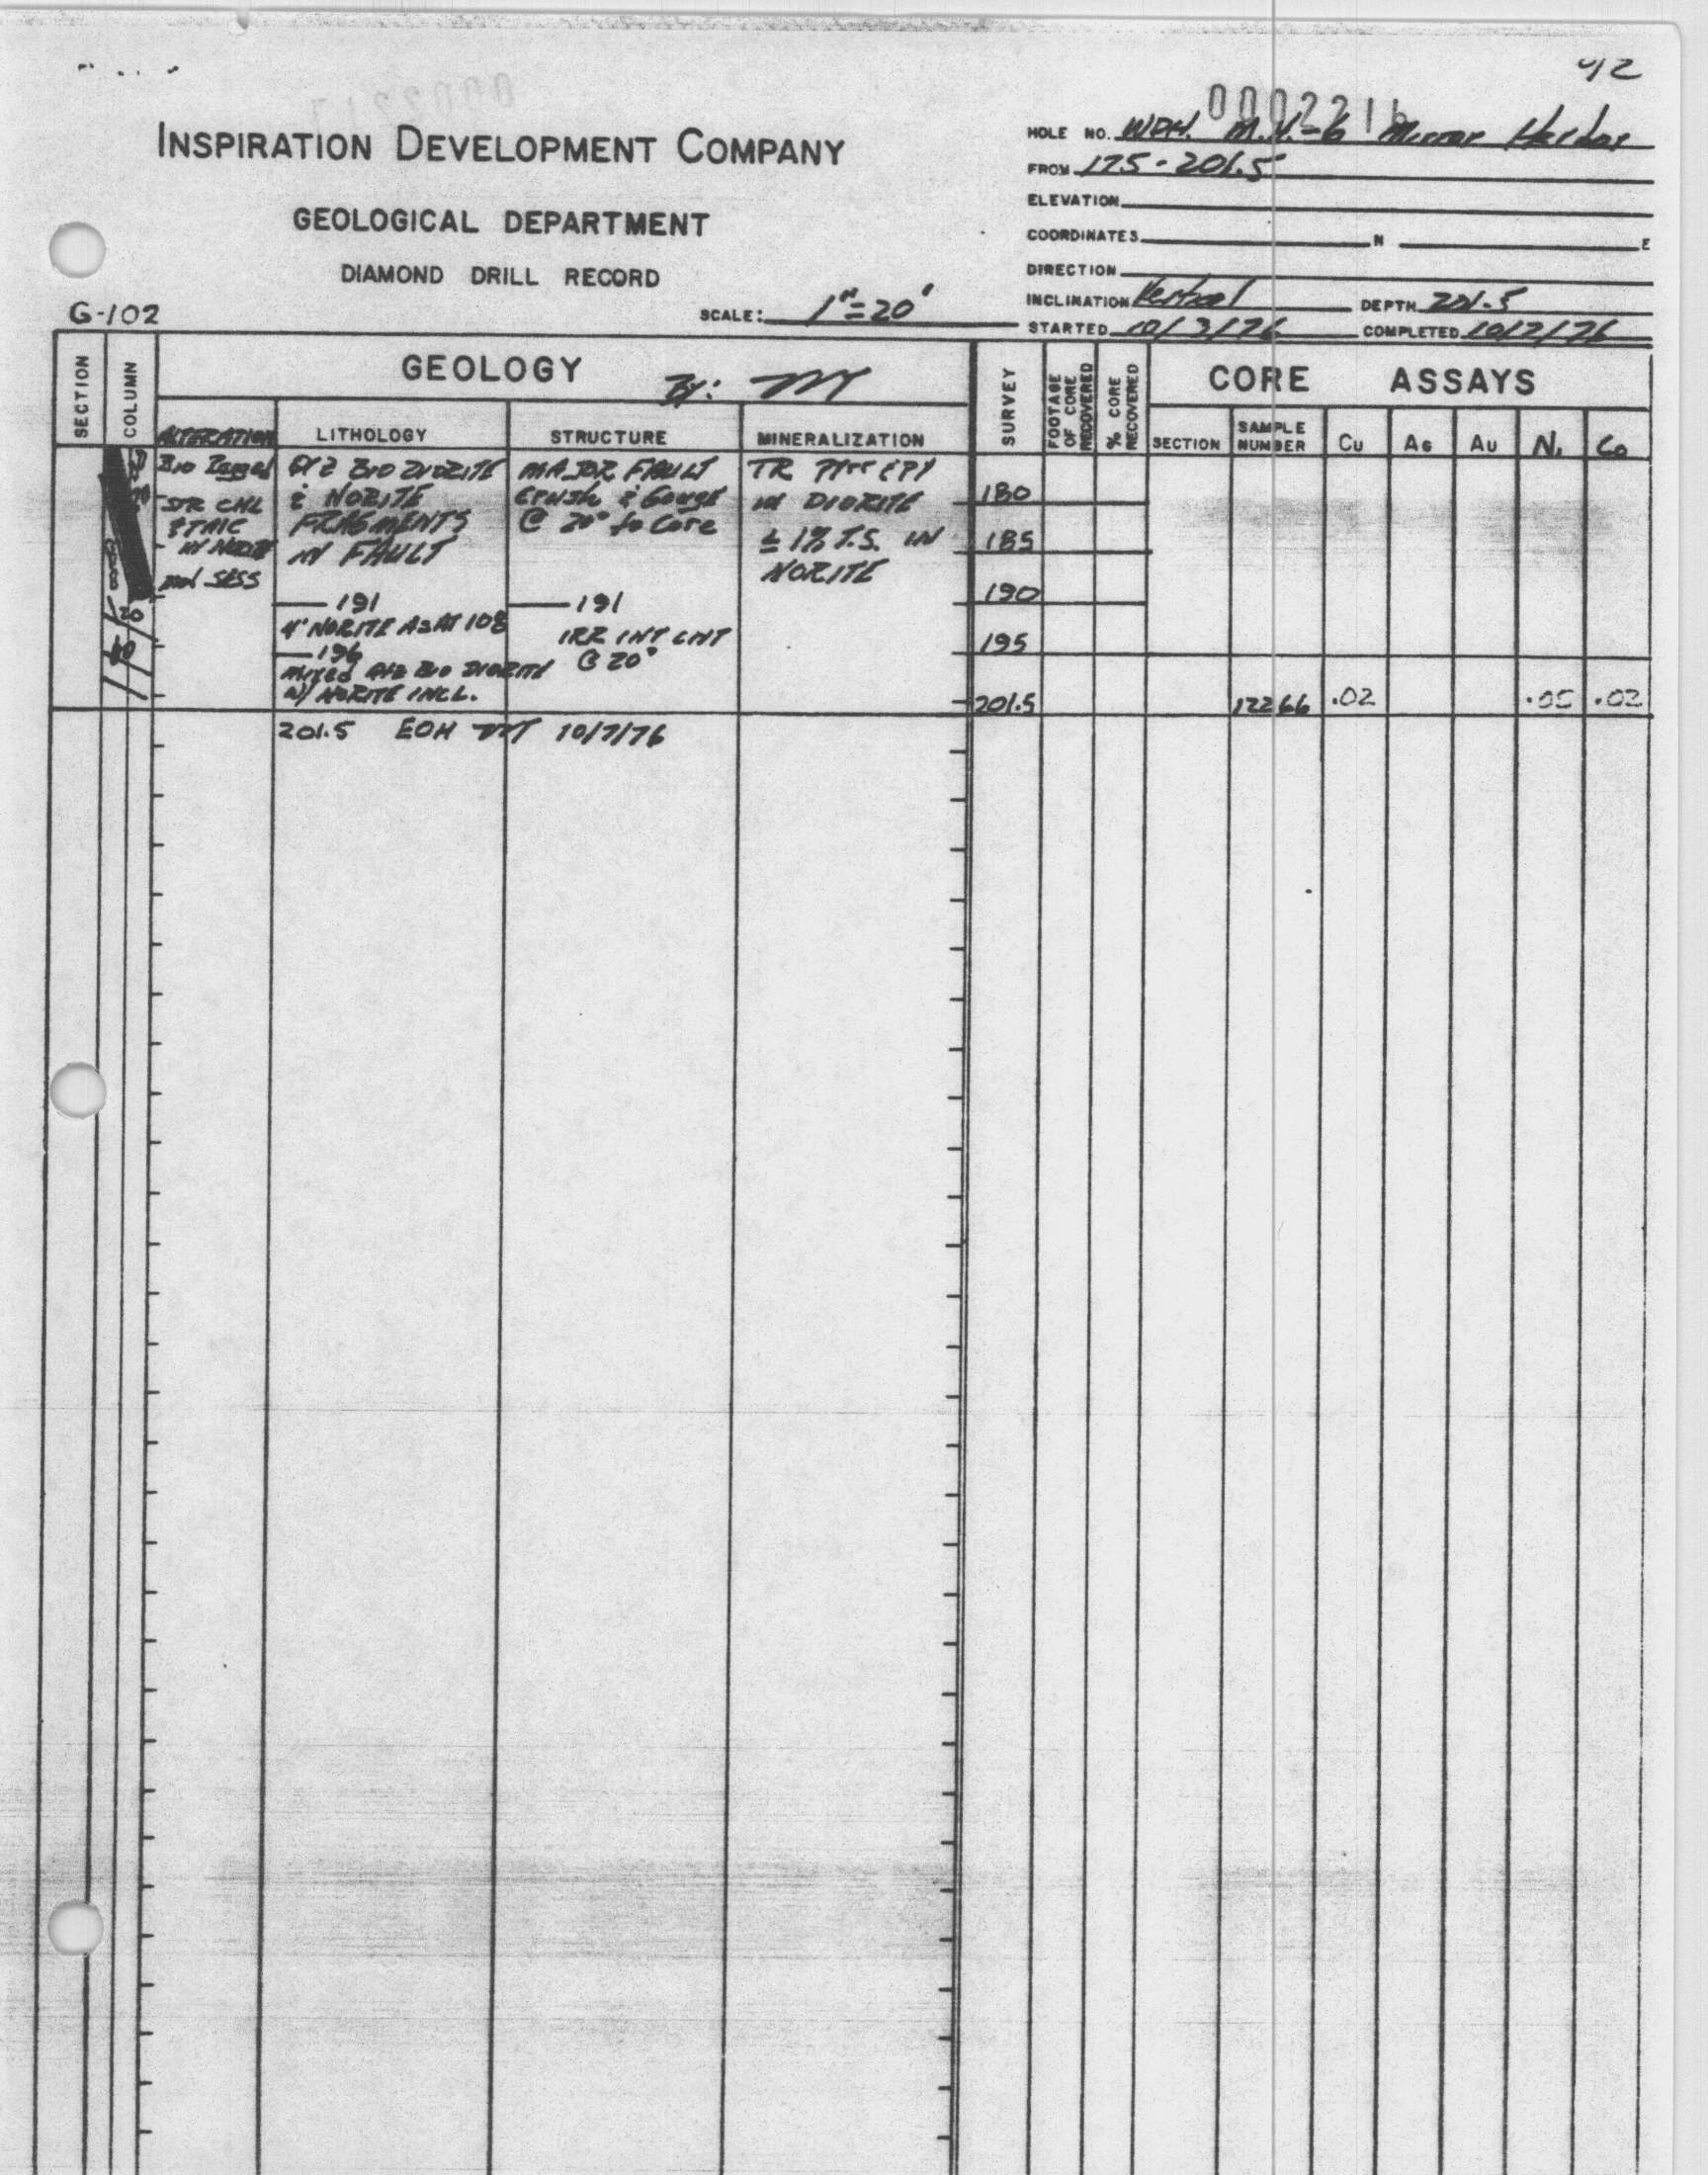 42
0002216
INSPIRATION DEVELOPMENT COMPANY
GEOLOGICAL DEPARTMENT
DIAMOND DRILL RECORD
G-102
SCALE: 1"=20'
HOLE NO. M.V.-6 Mirror Harbor
FROM 175-201.5
ELEVATION
COORDINATES N E
DIRECTION
INCLINATION Vertical DEPTH 201.5
STARTED 10/3/76 COMPLETED 10/7/76
SECTION COLUMN GEOLOGY By: SURVEY FOOTAGE OF CORE RECOVERED % CORE RECOVERED CORE ASSAYS
ALTERATION LITHOLOGY STRUCTURE MINERALIZATION SECTION SAMPLE NUMBER Cu AG AU Ni Co
BIO QTZ BIO DIORITE MAJOR FAULT TR
STR CHL & NORITE Crush & Gouge IN DIORITE 180
& TALC FRAGMENTS @ 20° to Core ± 1% T.S. IN 185
IN NORITE IN FAULT NORITE
— 191 — 191 190
4' NORITE AS AT 108 IRR INT CNT 195
— 196 @ 20°
mixed QTZ BIO DIORITE
w/ NORITE INCL. 201.5 12266 .02 .05 .02
201.5 EOH 10/7/76